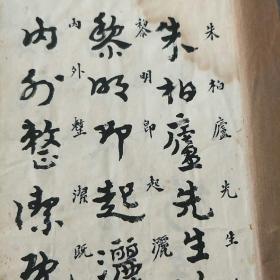 朱柏廬先生
朱柏廬先生
黎明即起灑
黎明即起灑
內外整潔既
內外整潔既